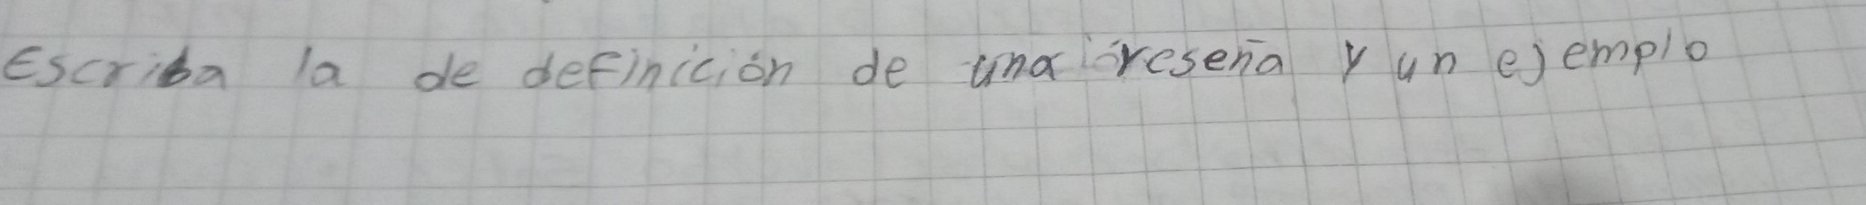 Escriba la de definición de una reseña y un ejemplo